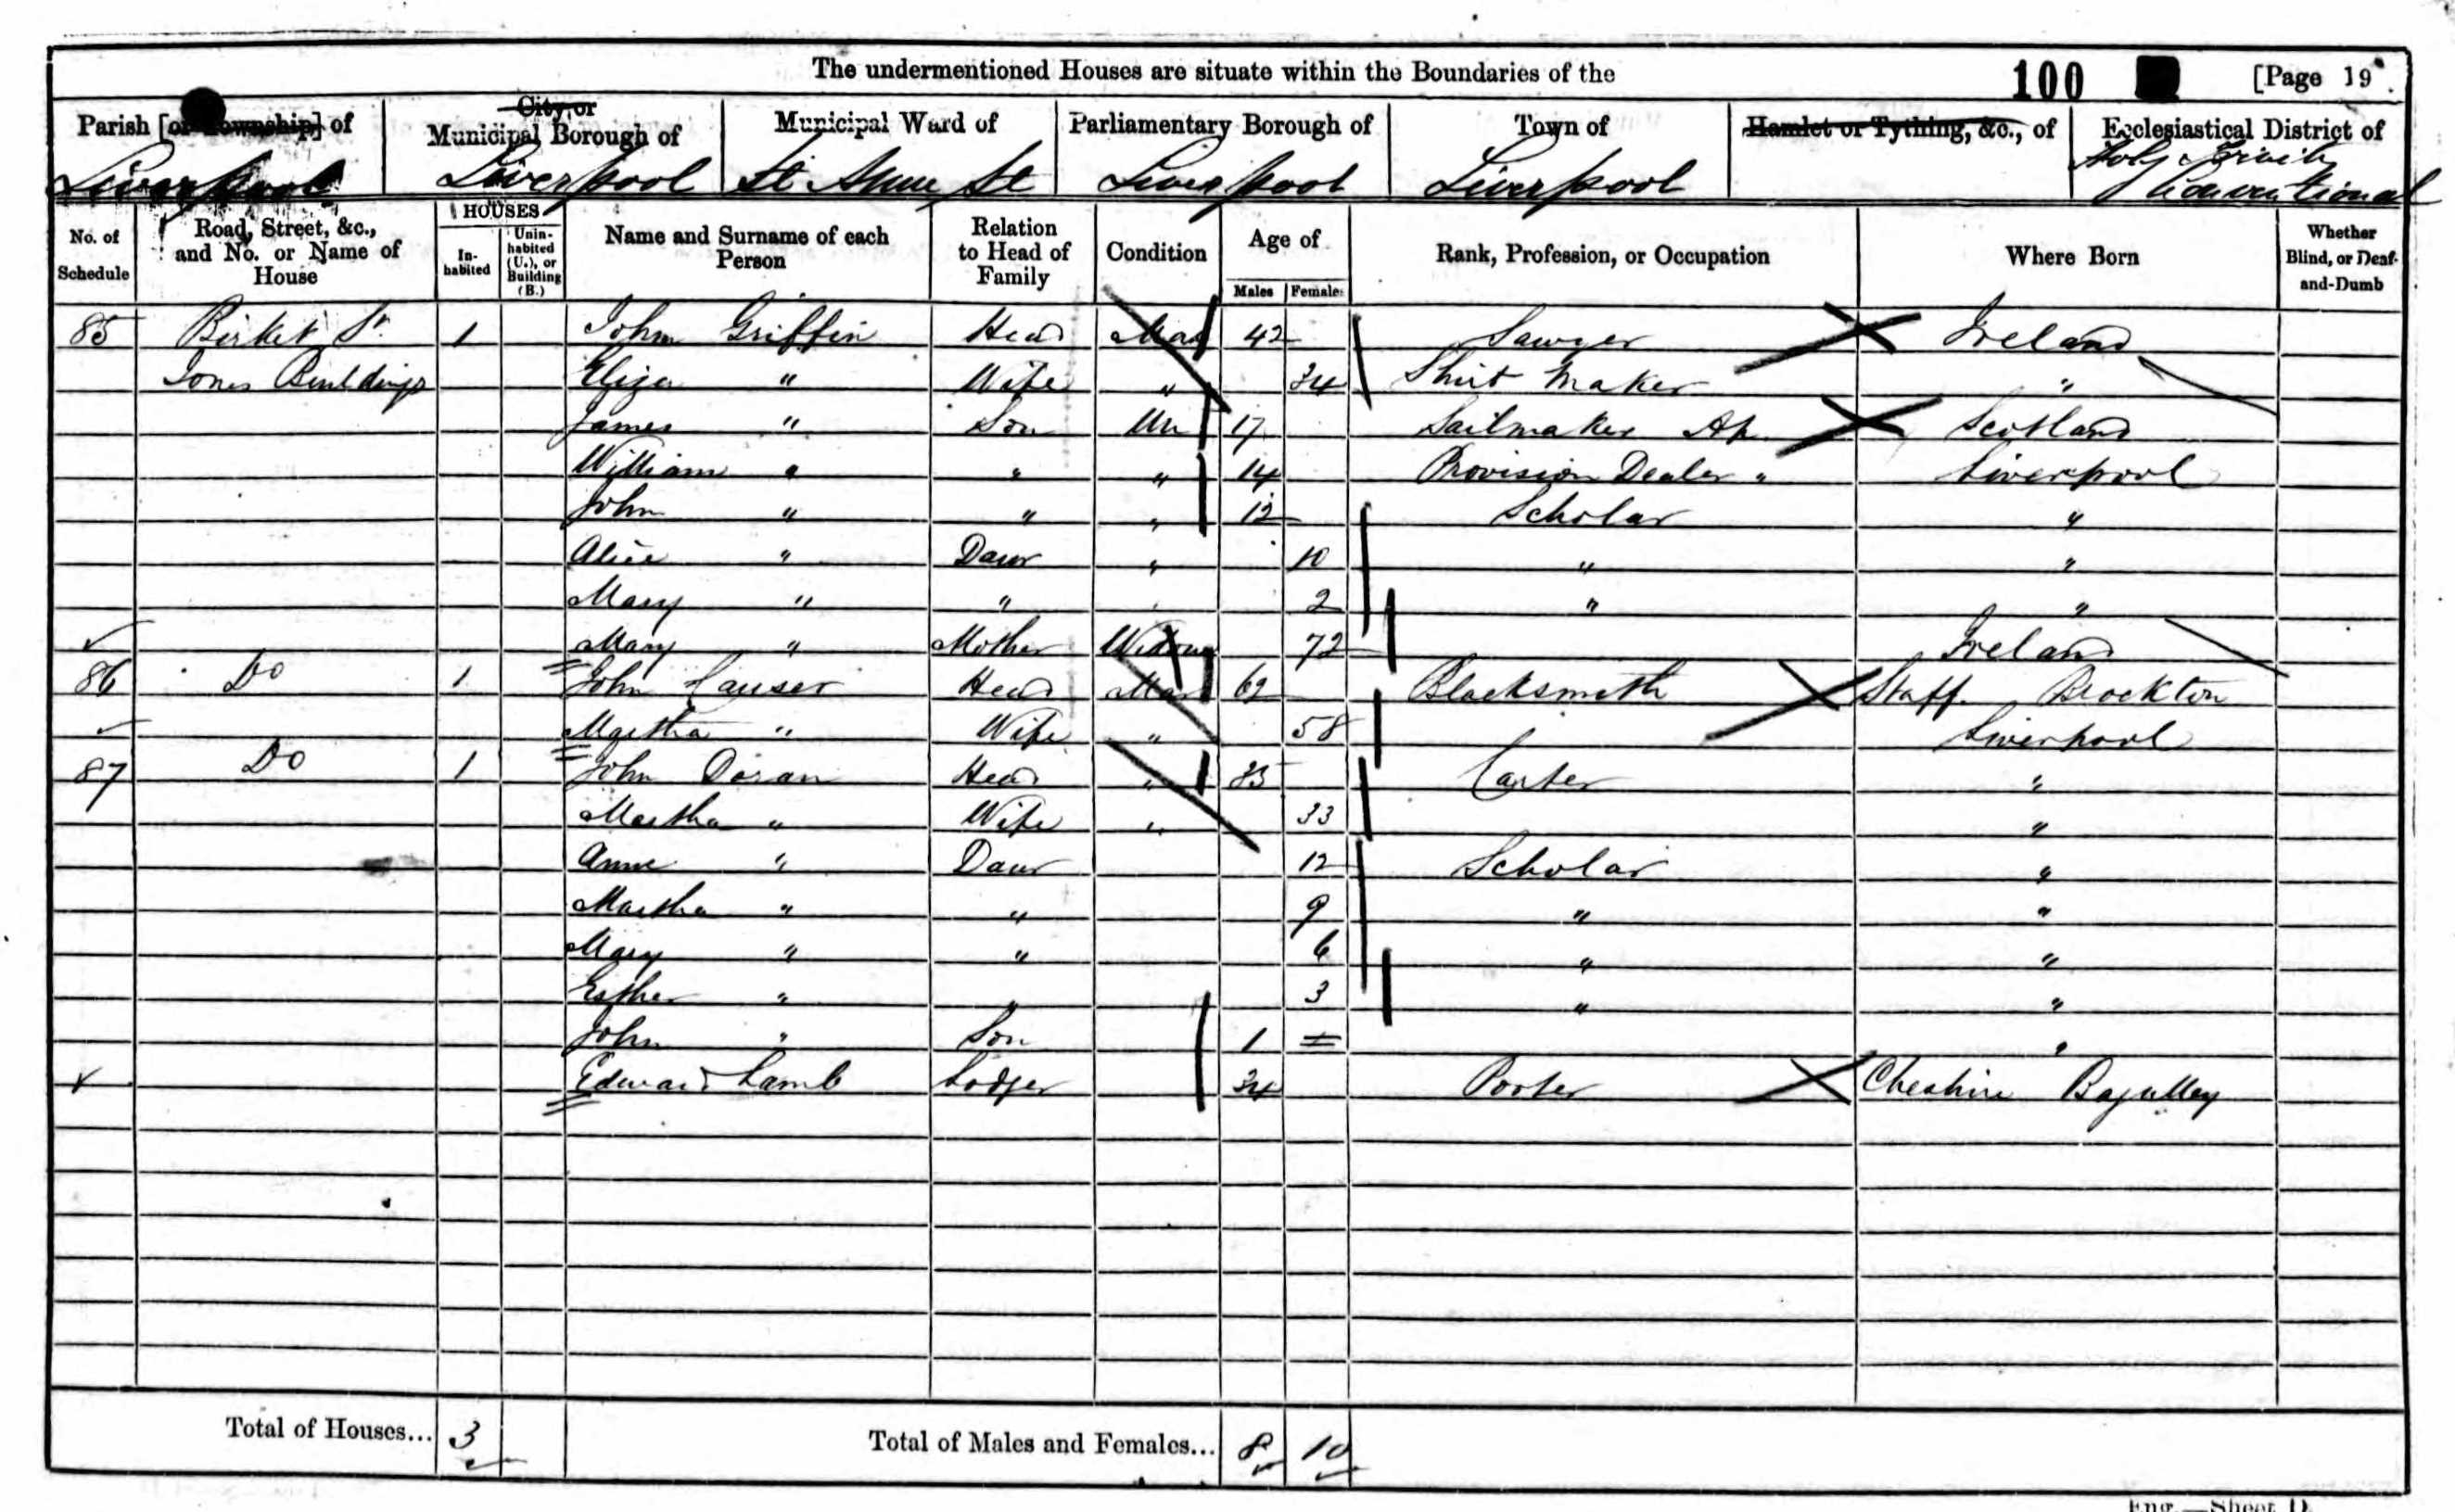 The undermentioned Houses are situate within the Boundaries of the 100 [Page 19.
Parish [or Township] of City or Municipal Borough of Municipal Ward of Parliamentary Borough of Town of Hamlet or Tything, &c., of Ecclesiastical District of
Liverpool Liverpool St Anne St Liverpool Liverpool Holy Trinity
No. of Schedule Road, Street, &c., and No. or Name of House HOUSES Inhabited Uninhabited (U.), or Building (B.) Name and Surname of each Person Relation to Head of Family Condition Age of Males Females Rank, Profession, or Occupation Where Born Whether Blind, or Deaf-and-Dumb
85 Birket St 1 John Griffin Head Mar 42 Sawyer Ireland
Jones Buildings Eliza " Wife " 34 Shirt Maker "
James " Son Un 17 Sailmaker Ap Scotland
William " " " 14 Provision Dealer " Liverpool
John " " " 12 Scholar "
Alice " Daur " 10 " "
Mary " " 2 " "
Mary " Mother Widow 72 Ireland
86 Do 1 John Causer Head Mar 62 Blacksmith Staff. Brockton
Martha " Wife " 58 Liverpool
87 Do 1 John Doran Head " 35 Carter "
Martha " Wife " 33 "
Anne " Daur 12 Scholar "
Martha " " 9 " "
Mary " " 6 " "
Esther " " 3 " "
John " Son 1 "
Edward Lamb Lodger 34 Porter Cheshire Bagulley
Total of Houses... 3 Total of Males and Females... 8 10
Eng.—Sheet D.